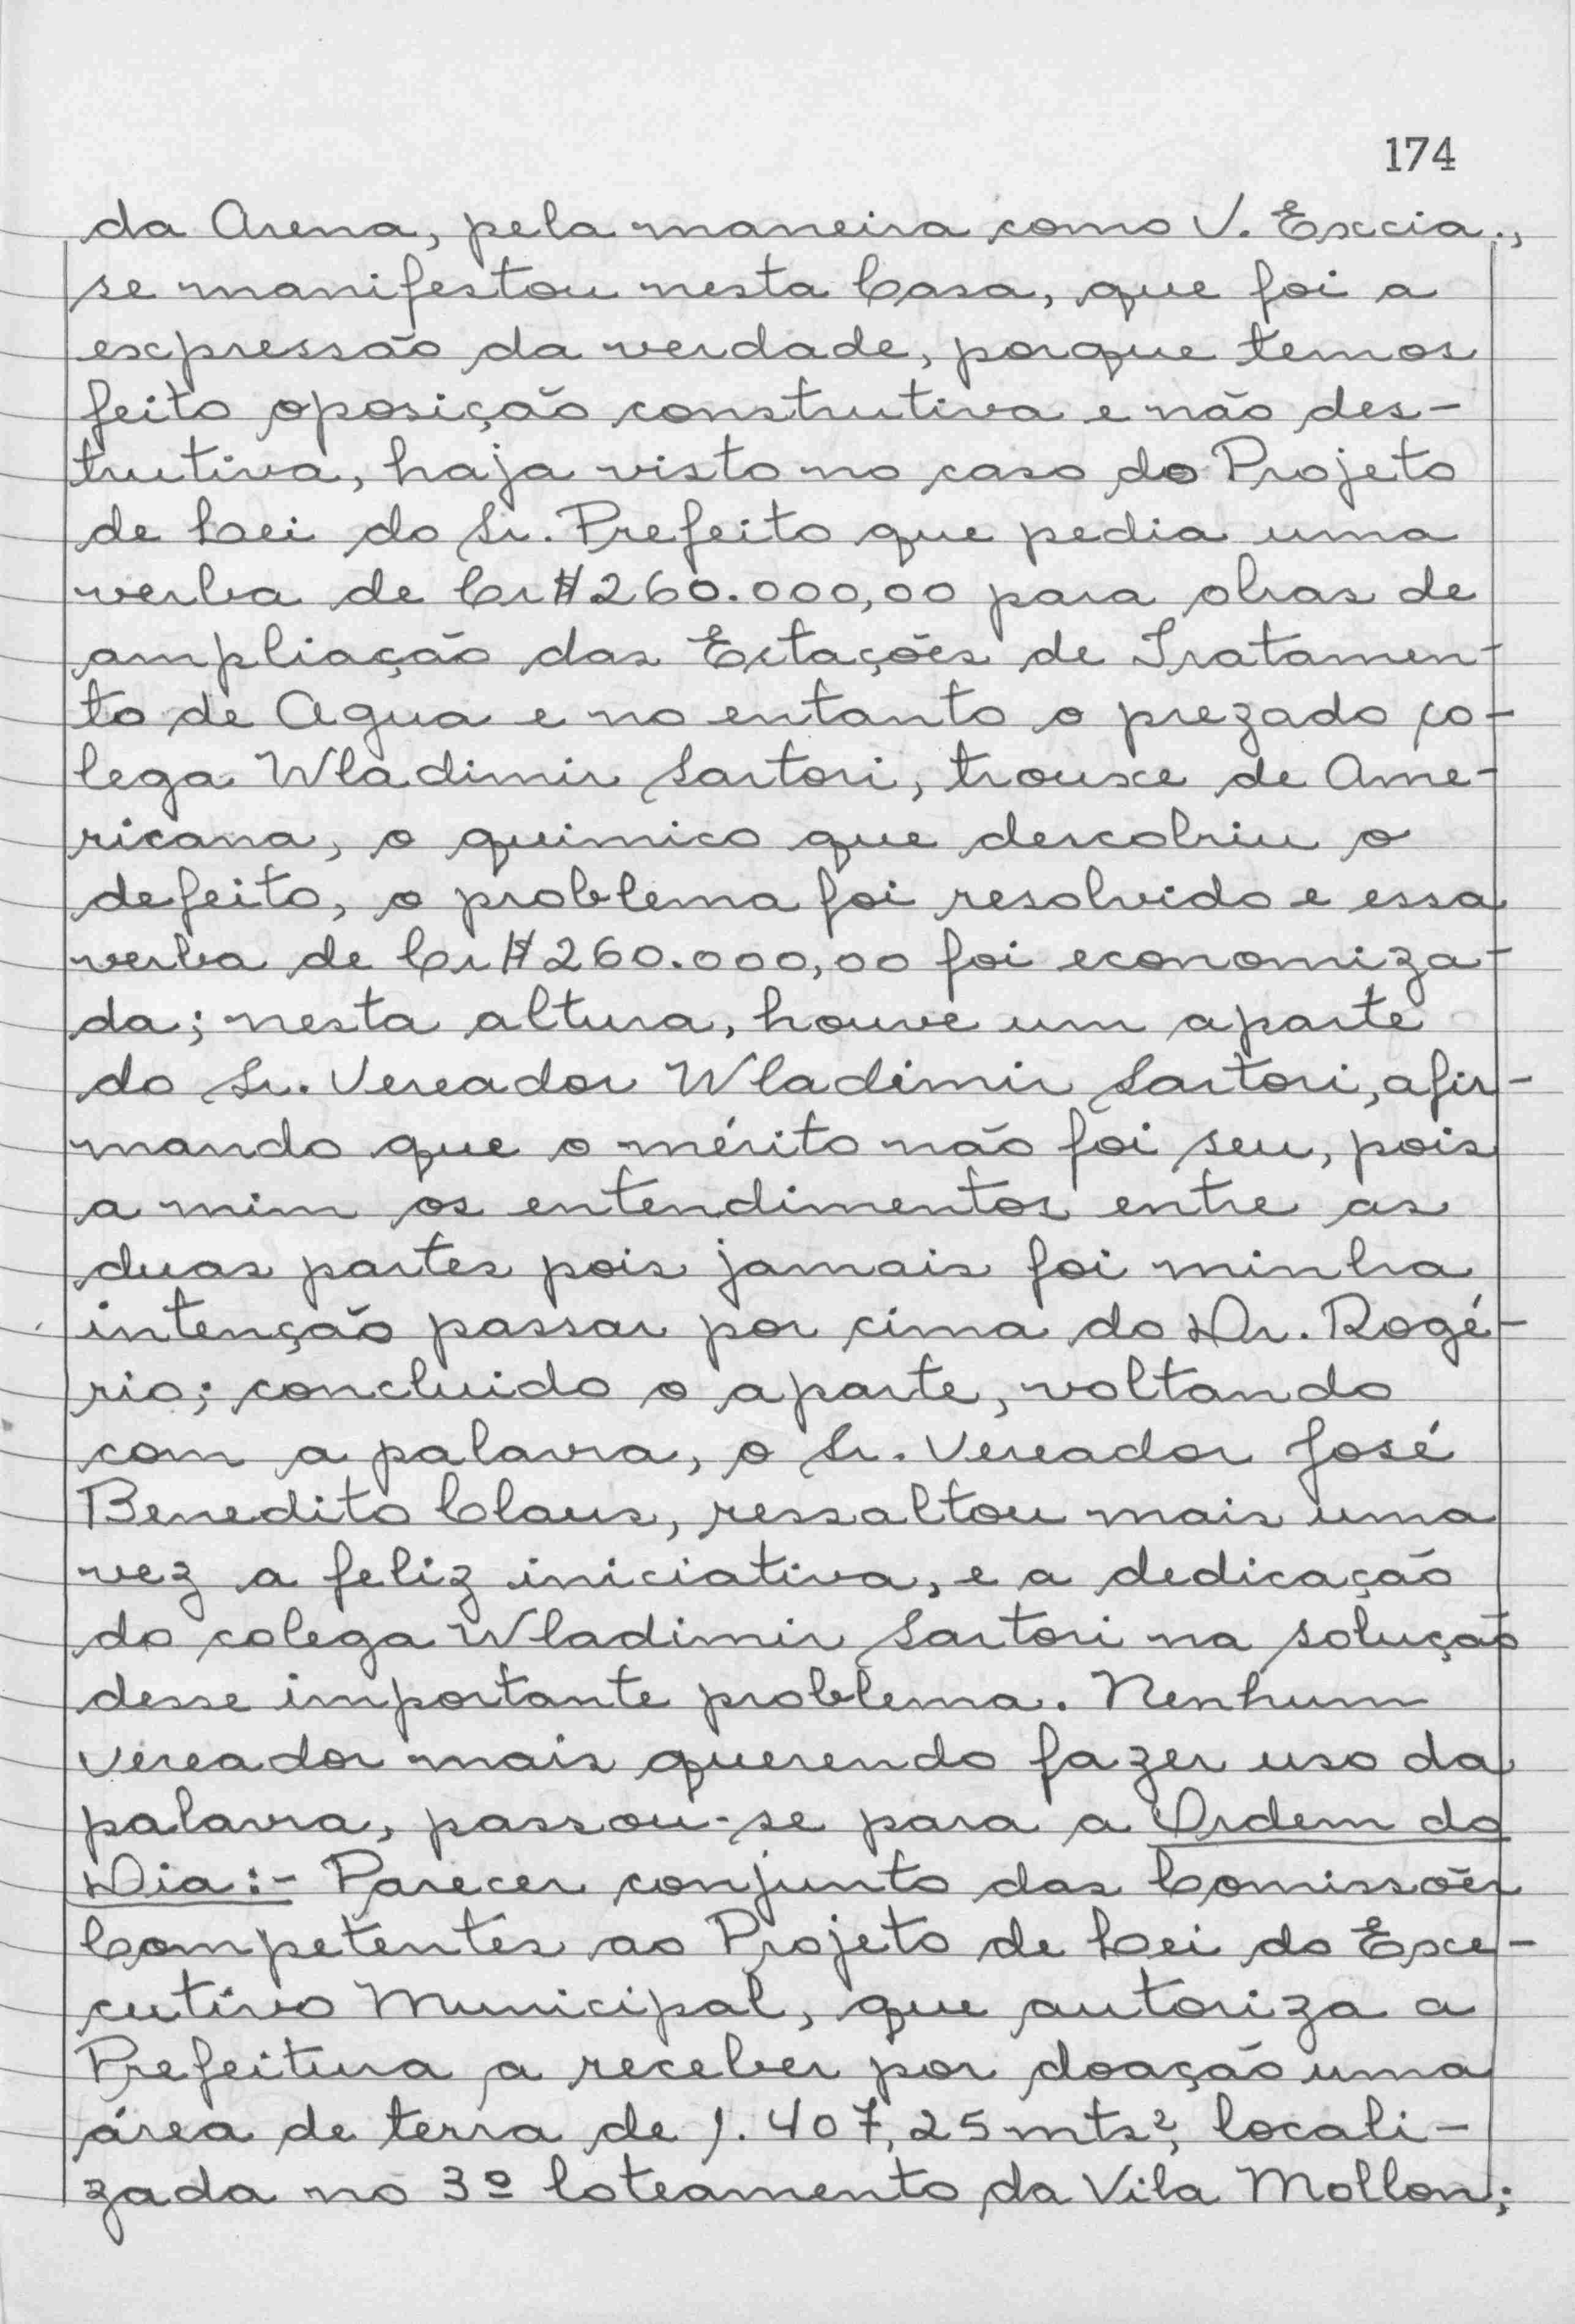 174
da Arena, pela maneira como V. Excia.,
se manifestou nesta Casa, que foi a
expressão da verdade, porque temos
feito oposição construtiva e não des-
trutiva, haja visto no caso do Projeto
de Lei do Sr. Prefeito que pedia uma
verba de Cr$260.000,00 para obras de
ampliação das Estações de Tratamen-
to de Agua e no entanto o prezado co-
lega Wladimir Sartori, trouxe de Ame-
ricana, o quimico que descobriu o
defeito, o problema foi resolvido e essa
verba de Cr$260.000,00 foi economiza-
da; nesta altura, houve um aparte
do Sr. Vereador Wladimir Sartori, afir-
mando que o mérito não foi seu, pois
a mim os entendimentos entre as
duas partes pois jamais foi minha
intenção passar por cima do Dr. Rogé-
rio; concluido o aparte, voltando
com a palavra, o Sr. Vereador José
Benedito Claus, ressaltou mais uma
vez a feliz iniciativa, e a dedicação
do colega Wladimir Sartori na solução
desse importante problema. Nenhum
vereador mais querendo fazer uso da
palavra, passou-se para a Ordem do
Dia:- Parecer conjunto das Comissões
Competentes ao Projeto de Lei do Exe-
cutivo Municipal, que autoriza a
Prefeitura a receber por doação uma
área de terra de 1.407,25mts², locali-
zada no 3º loteamento da Vila Mollon;